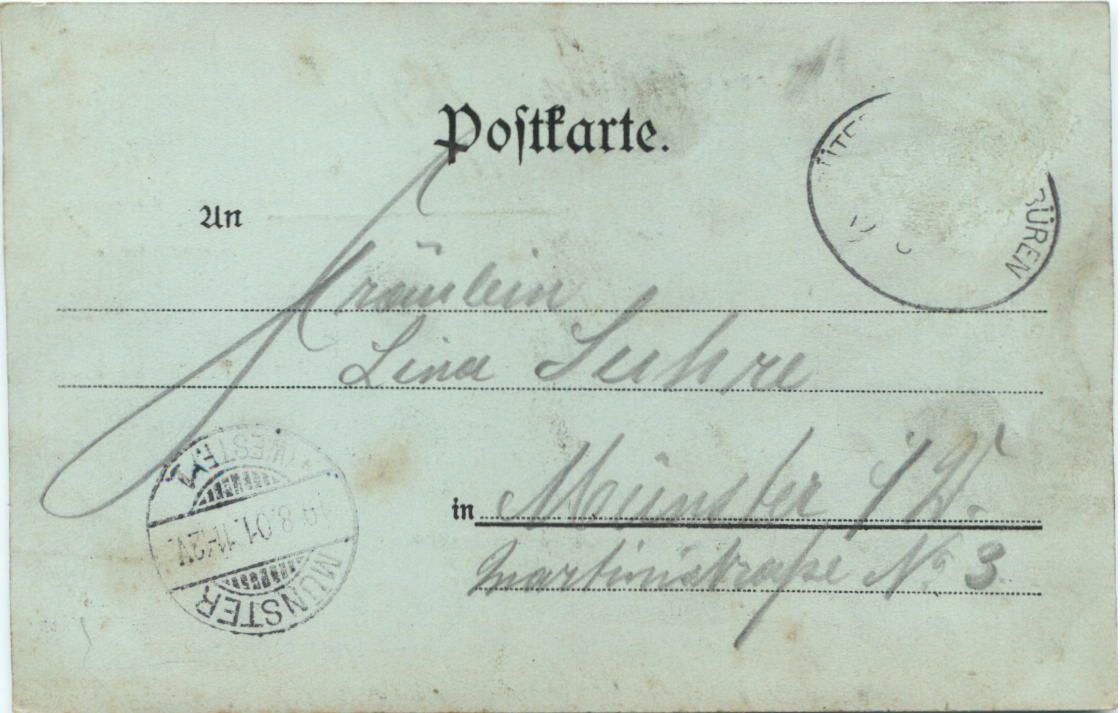 Postkarte.
An
Fräulein
Lina Suhre
in Münster i/W.
Martinistraße No 3
BÜREN
MÜNSTER
(WESTF.)
19.8.01.11-12V.